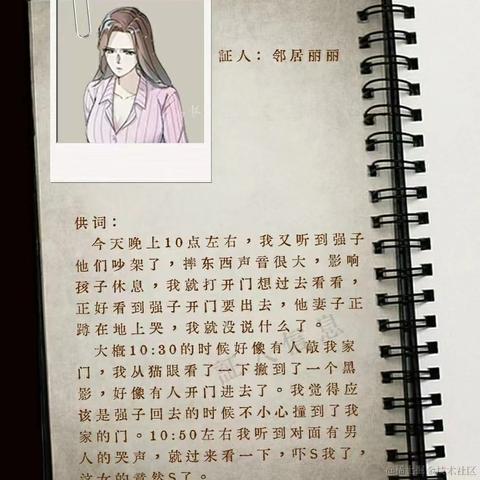 証人：邻居丽丽
供词：
今天晚上10点左右，我又听到强子
他们吵架了，摔东西声音很大，影响
孩子休息，我就打开门想过去看看，
正好看到强子开门要出去，他妻子正
蹲在地上哭，我就没说什么了。
大概10:30的时候好像有人敲我家
门，我从猫眼看了一下撇到了一个黑
影，好像有人开门进去了。我觉得应
该是强子回去的时候不小心撞到了我
家的门。10:50左右我听到对面有男
人的哭声，就过来看一下，吓S我了，
这女的竟然S了。